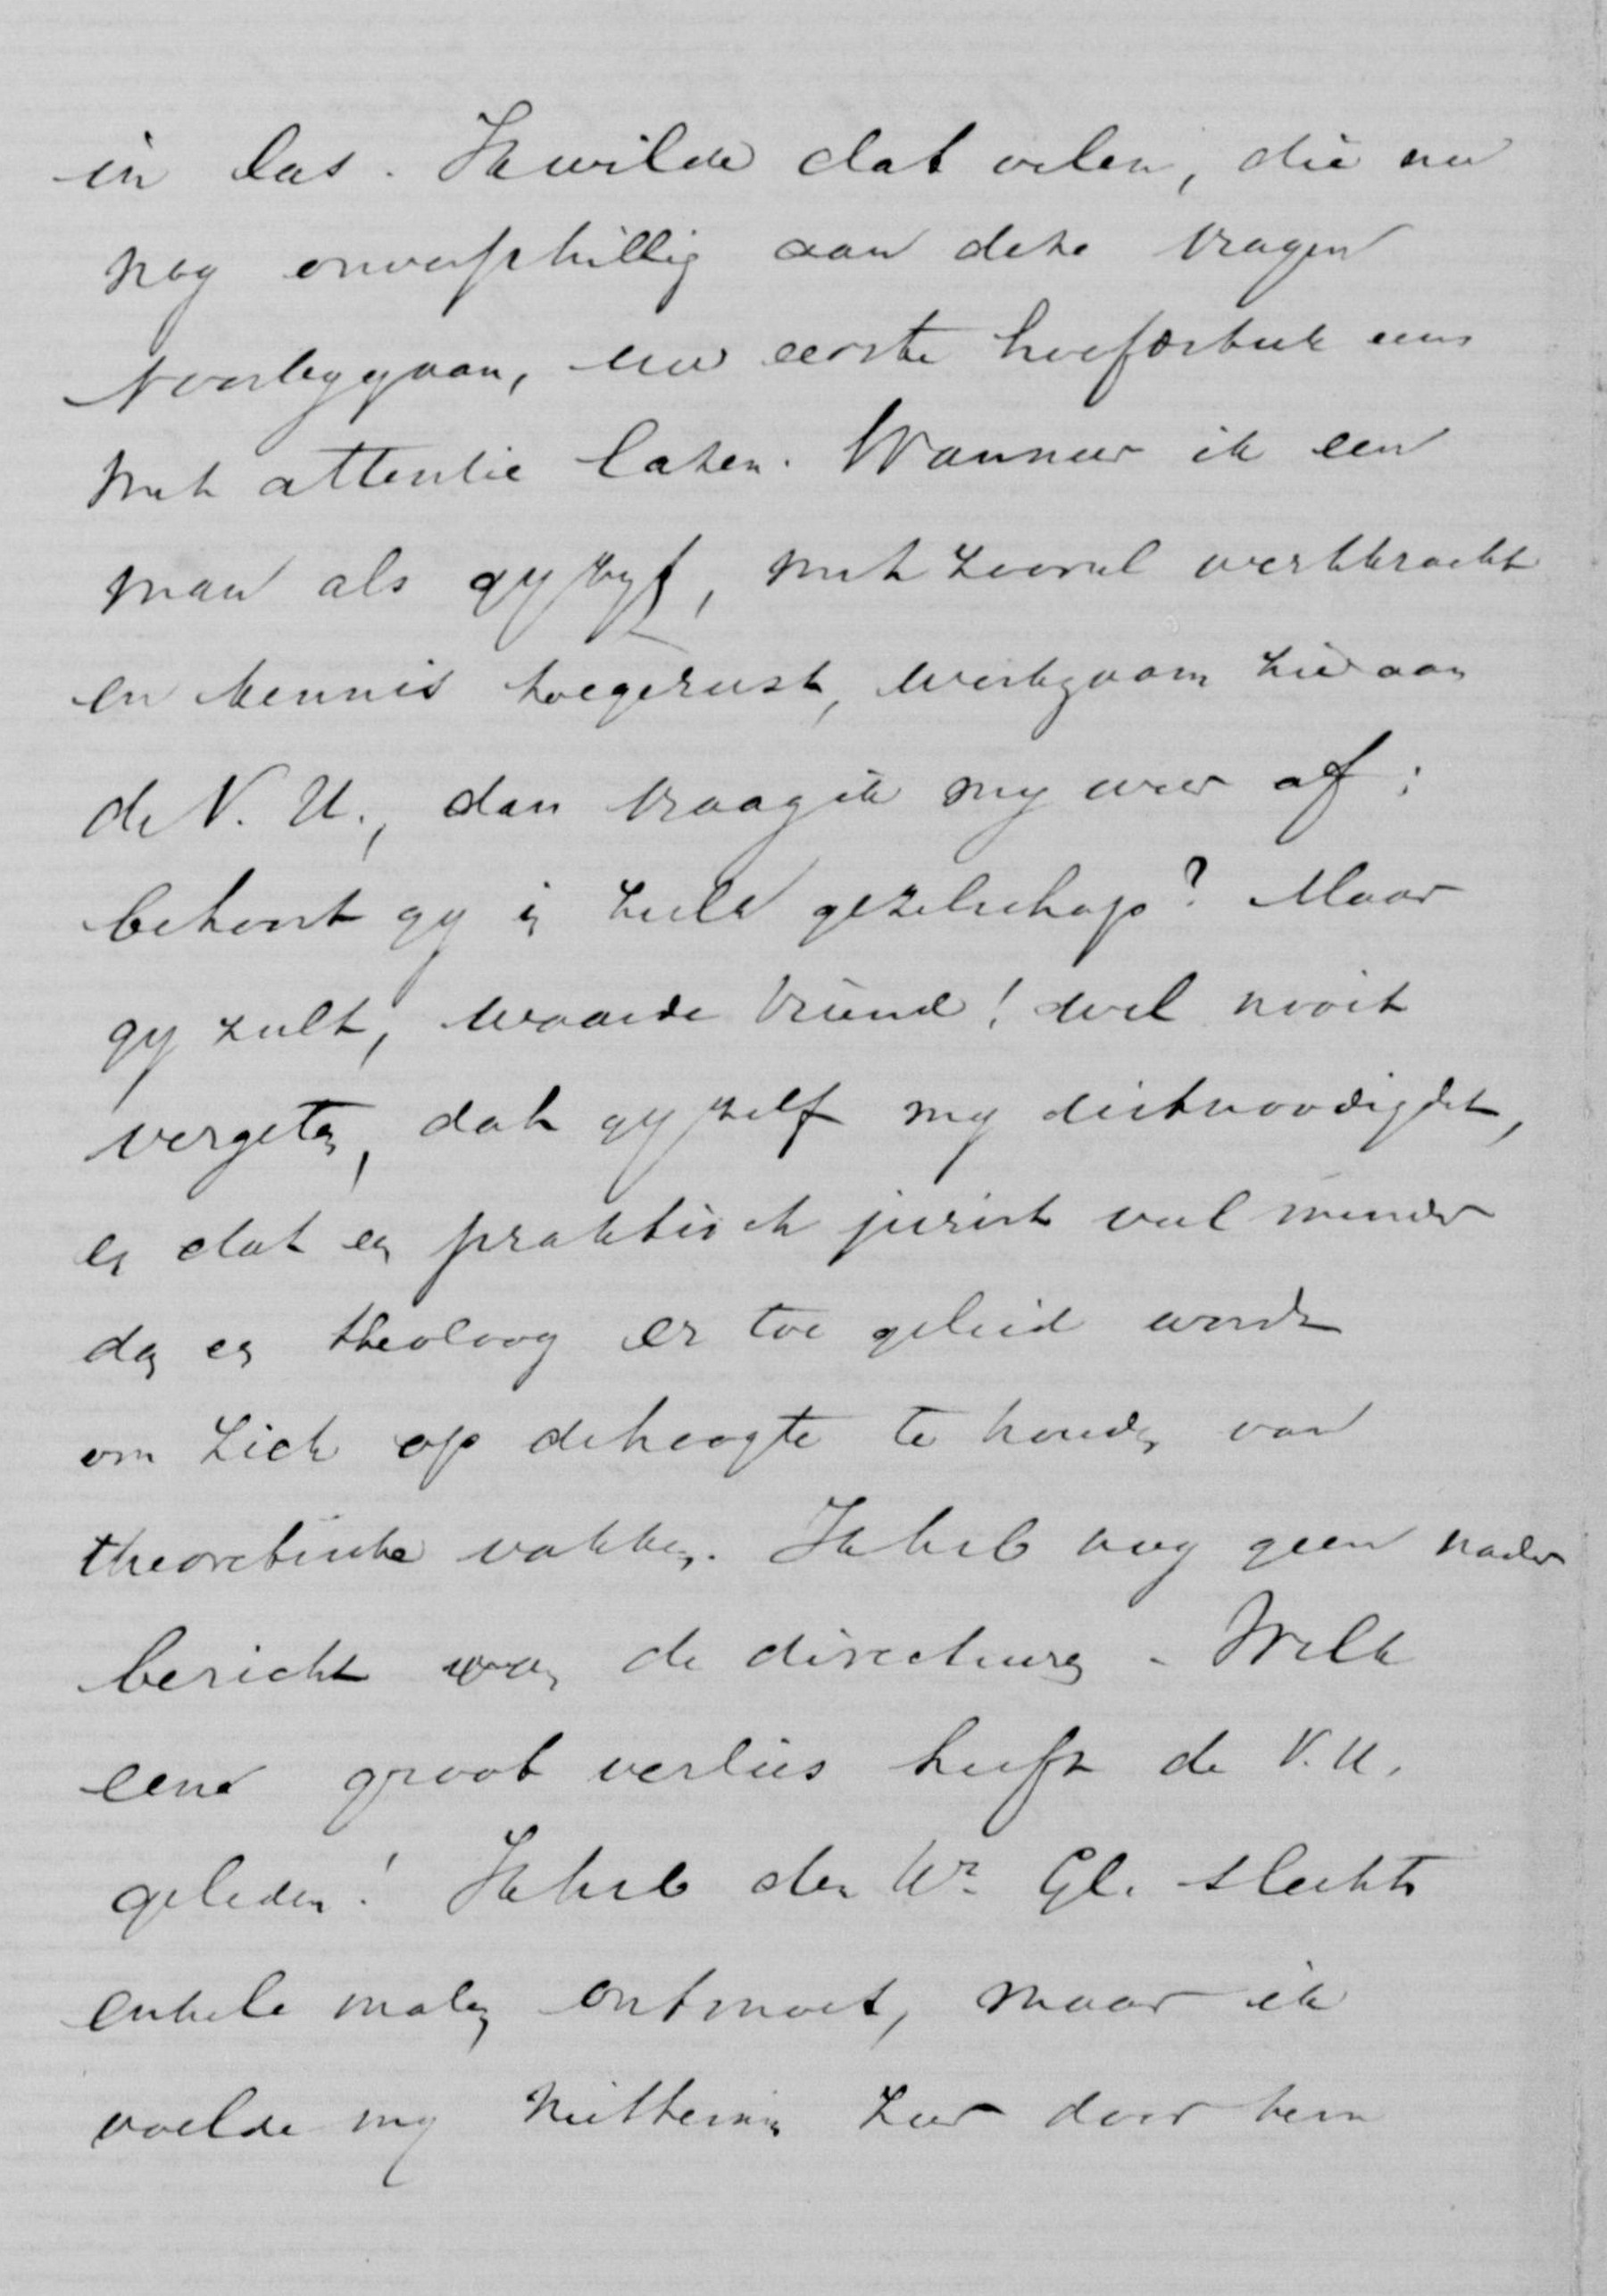 in las. Ik wilde dat velen, die nu
nog onverschillig aan deze vragen
voorbygaan, uw eerste hoofdstuk eens
met attentie lazen. Wanneer ik een
man als gy zyt, met zooveel werkkracht
en kennis toegerust, werkzaam zie aan
de V. U., dan vraag ik my weer af:
behoort gy in zulk gezelschap? Maar
gy zult, waarde vriend! wel nooit
vergeten, dat gy zelf my uitnoodigdet,
en dat een praktisch jurist veel minder
dan een theoloog er toe geleid wordt
om zich op de hoogte te houden van
theoretische vakken. Ik heb nog geen nader
bericht van de directeuren. Welk
een groot verlies heeft de V. U.
geleden! Ik heb den Wr. Gl. slechts
enkele malen ontmoet, maar ik
voelde my niettemin zeer door hem